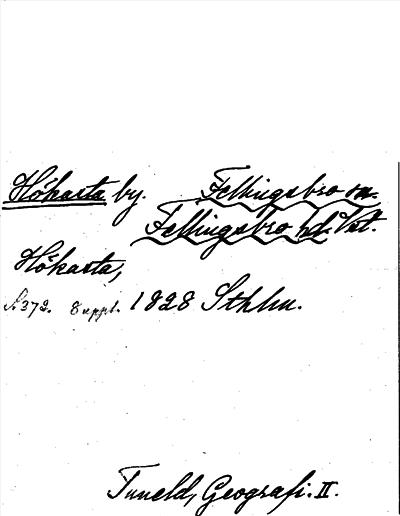 Hökasta by. Fellingsbro sn.
Fellingsbro hd. Vstl.
Hökasta,
S. 372. 8 uppl. 1828 Sthlm.
Tuneld, Geografi. II.